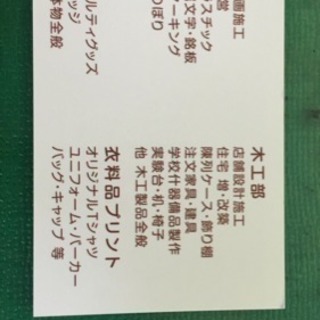 画施工
営
スチック
文字・銘板
ーキング
のぼり
ルティグッズ
ッジ
物全般
木工部
店舗設計施工
住宅 増・改築
陳列ケース・飾り棚
注文家具・建具
学校什器備品製作
実験台・机・椅子
他 木工製品全般
衣料品プリント
オリジナルTシャツ
ユニフォーム・パーカー
バッグ・キャップ 等